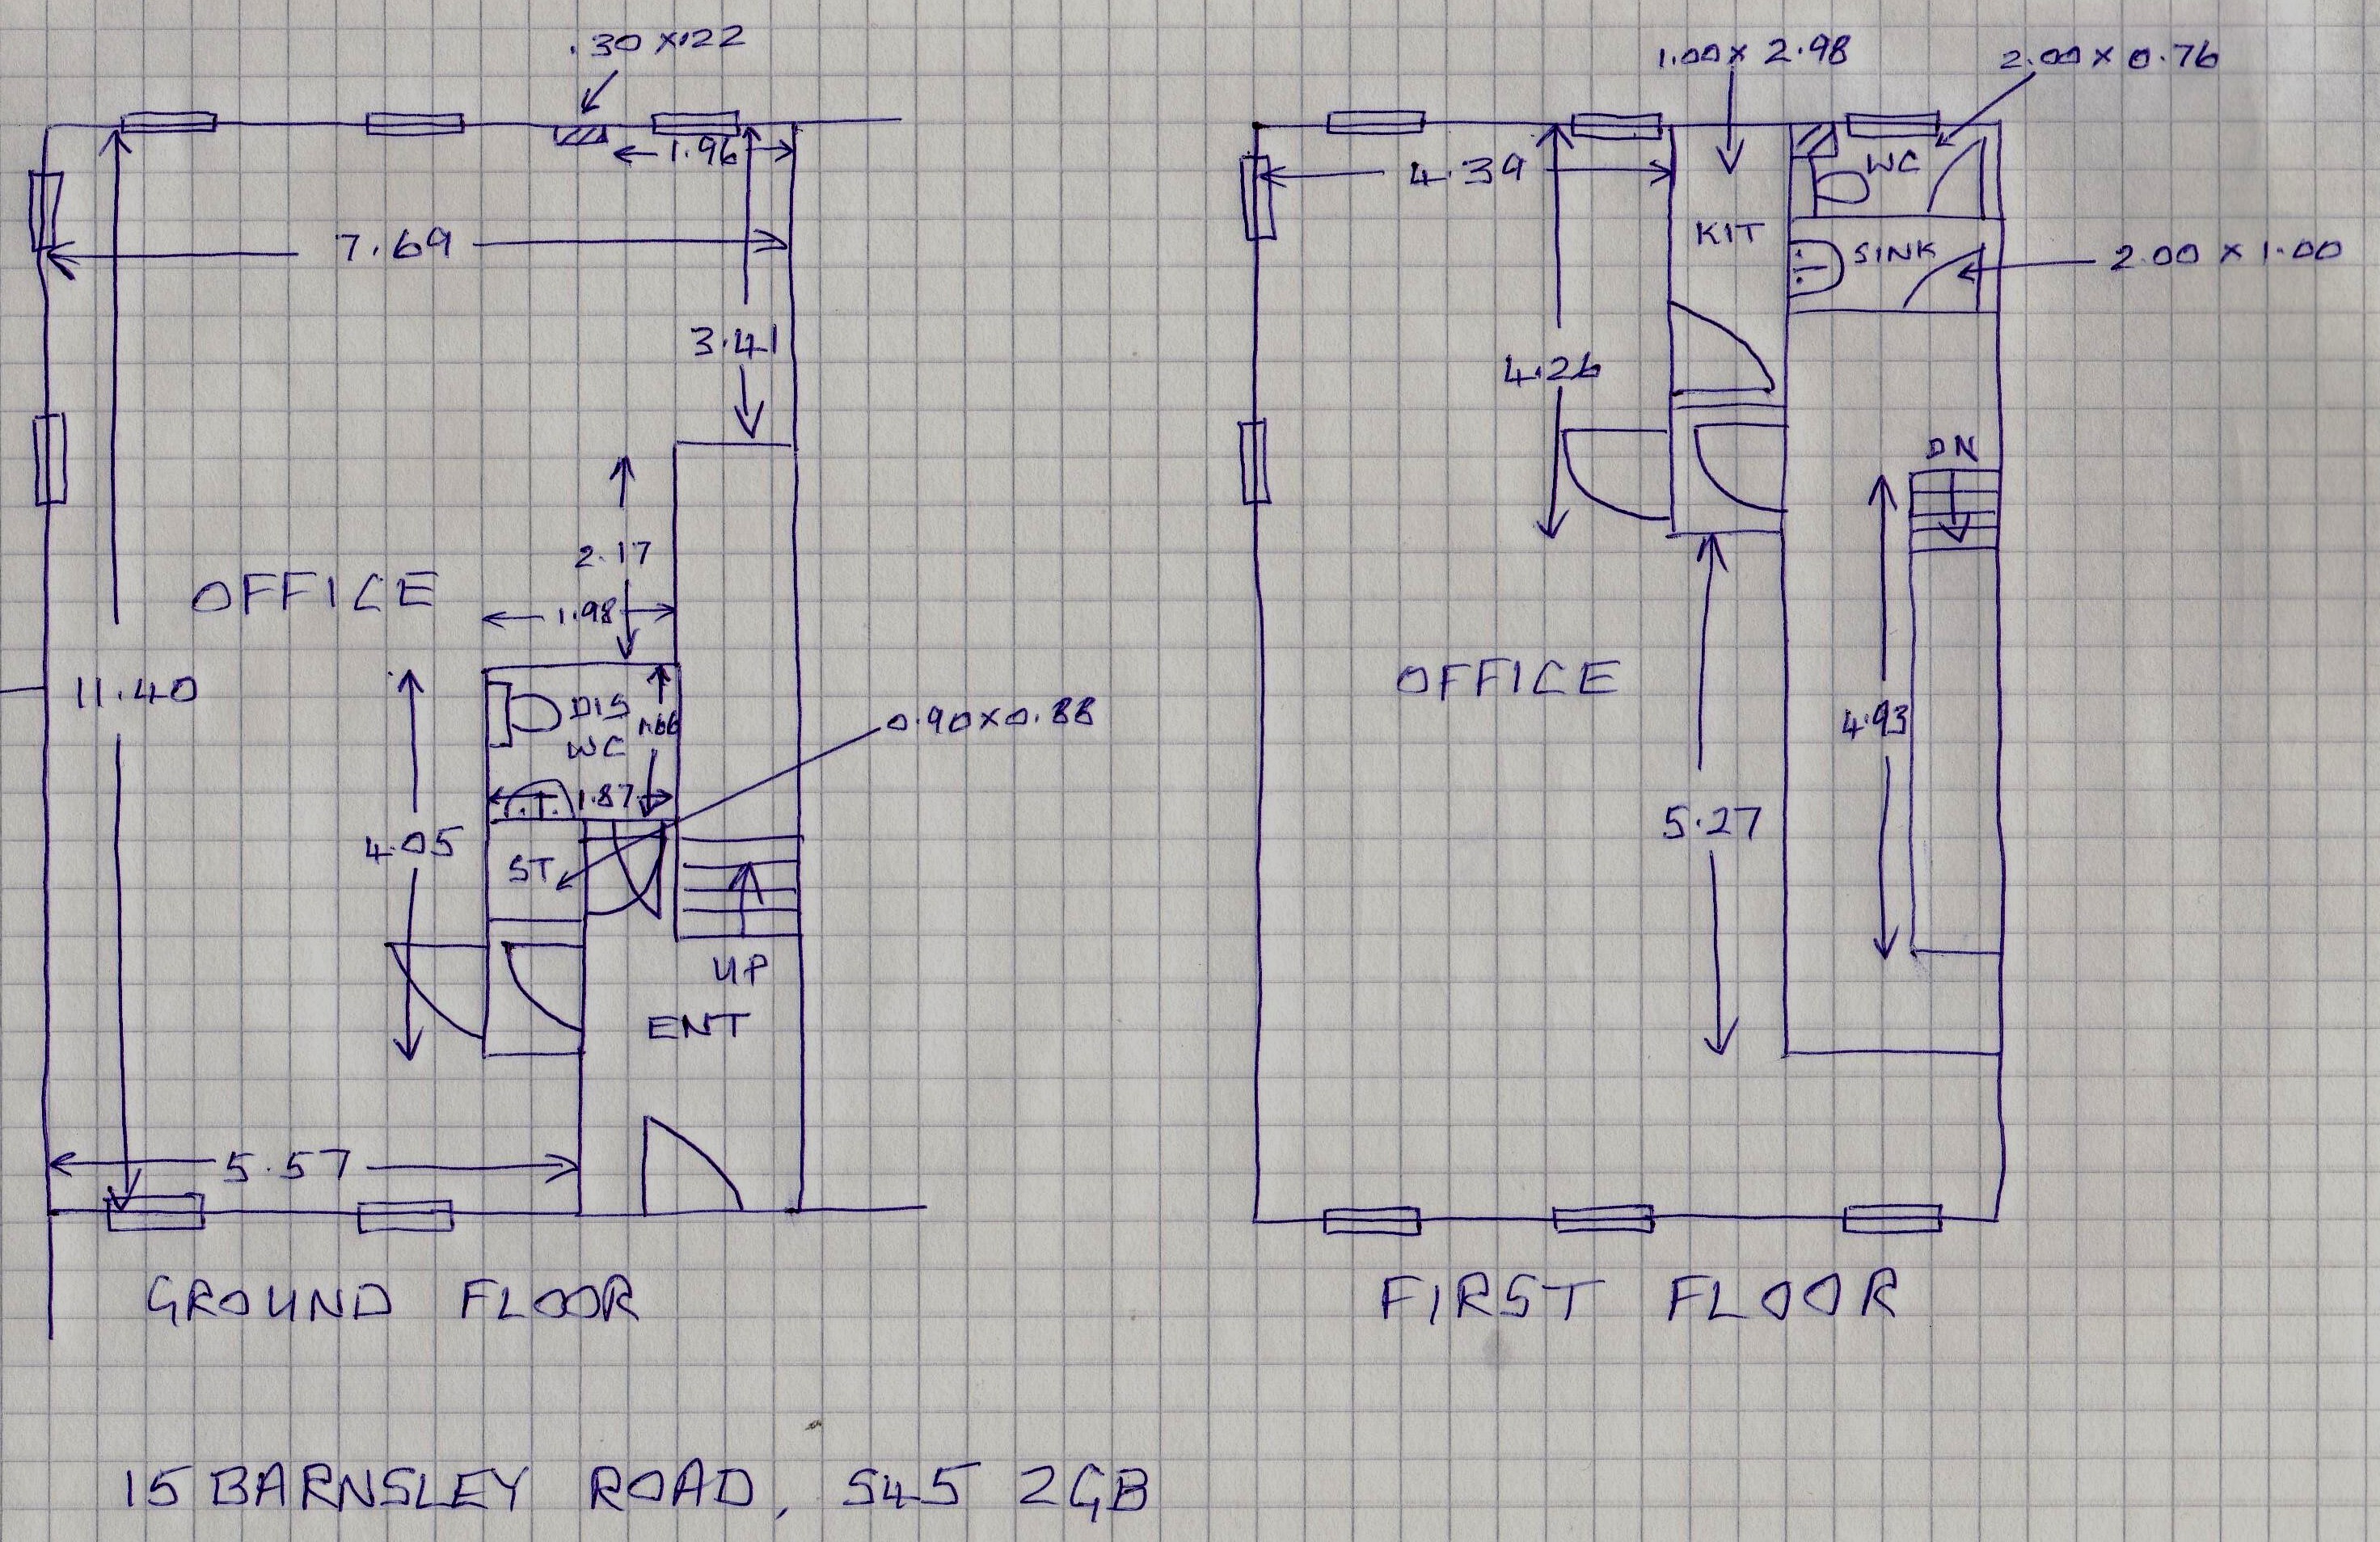 .30 x .22
1.96
7.69
3.41
2.17
OFFICE
1.98
11.40
DIS
WC
1.66
0.90 x 0.88
1.87
4.05
ST
UP
ENT
5.57
GROUND FLOOR
1.00 x 2.98
2.00 x 0.76
4.39
WC
KIT
SINK
2.00 x 1.00
4.26
DN
OFFICE
4.93
5.27
FIRST FLOOR
15 BARNSLEY ROAD, S45 2GB